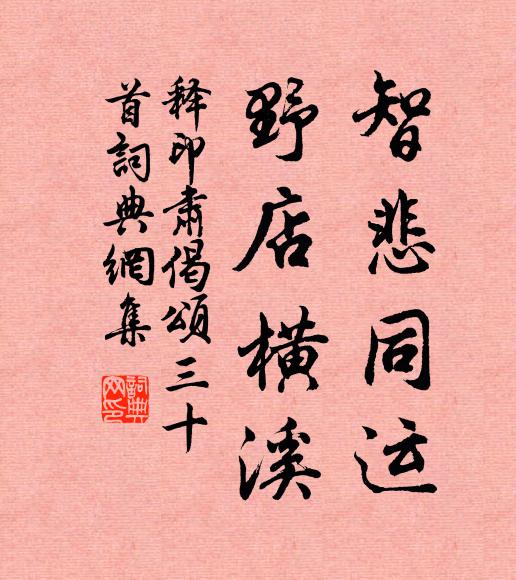 智悲同运
野店横溪
释印肃偈颂三十
首詞典網集
詞典网印